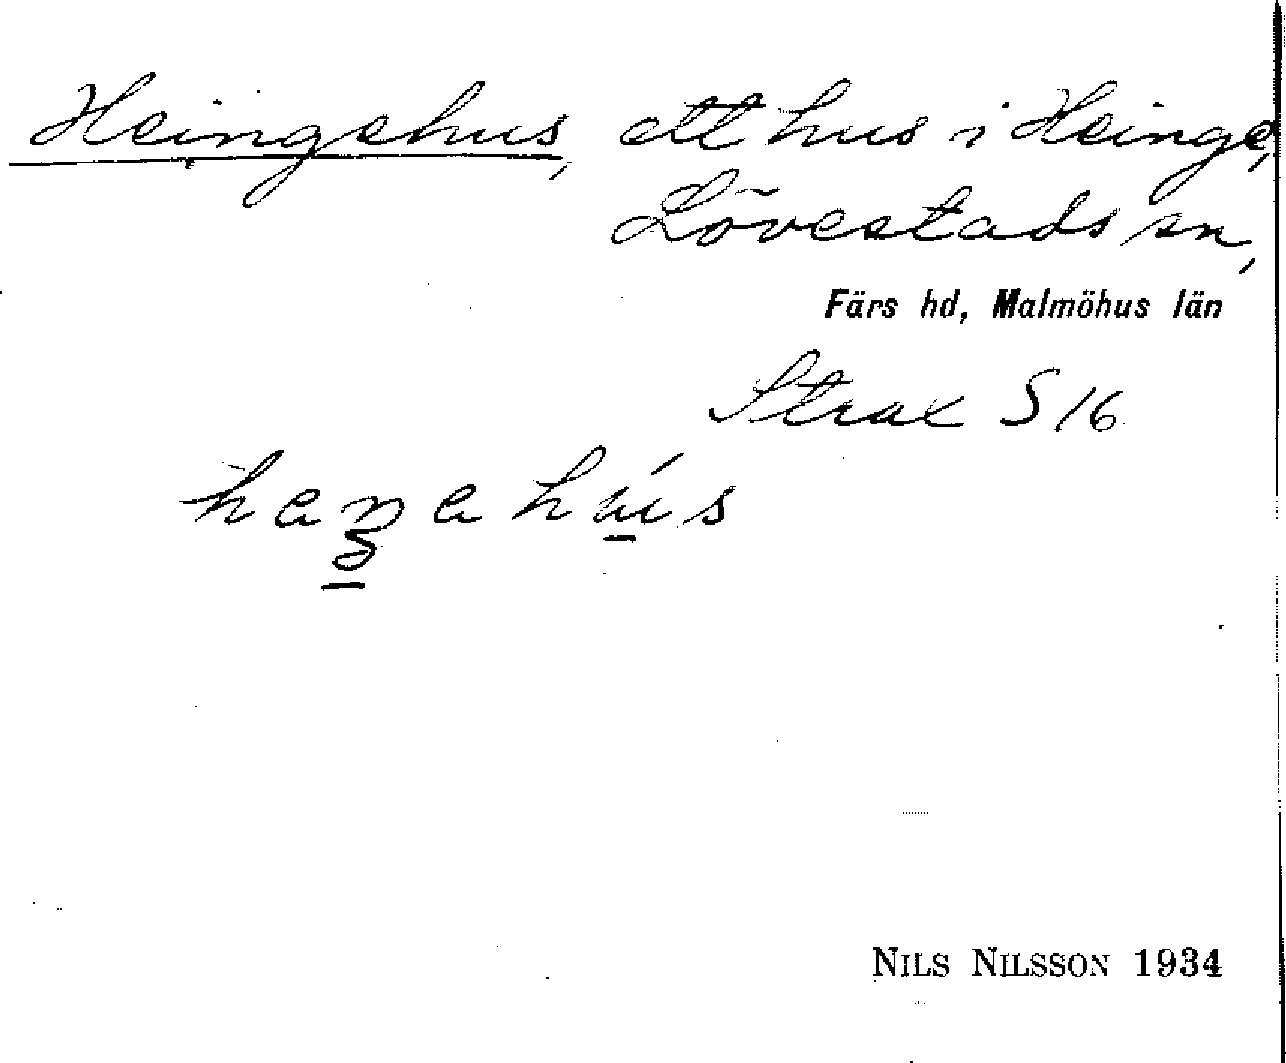 Heingehus, ett hus i Heinge,
Lövestads sn,
Färs hd, Malmöhus län
Strax S 16
NILS NILSSON 1934